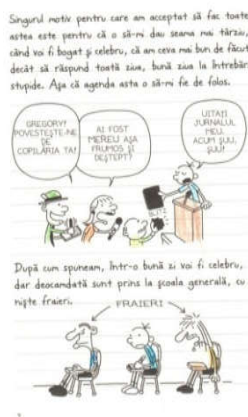 Singurul motiv pentru care am acceptat să fac toate
astea este pentru că o să-mi dau seama mai târziu,
când voi fi bogat și celebru, că am ceva mai bun de făcut
decât să răspund toată ziua, bună ziua la întrebări
stupide. Așa că agenda asta o să-mi fie de folos.
GREGORY!
POVESTEȘTE-NE
DE
COPILĂRIA TA!
AI FOST
MEREU AȘA
FRUMOS ȘI
DEȘTEPT?
UITAȚI
JURNALUL
MEU.
ACUM ȘUU,
ȘUU!
BLITZ
După cum spuneam, într-o bună zi voi fi celebru,
dar deocamdată sunt prins la școala generală, cu
niște fraieri.
FRAIERI